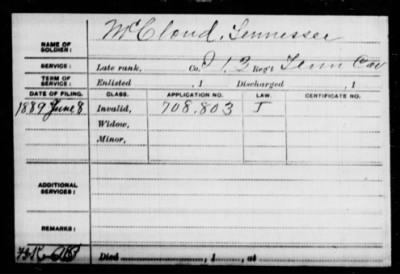 NAME OF SOLDIER: McCloud, Tennessee
SERVICE: Late rank, Co. I 13 Reg't Tenn Cav
TERM OF SERVICE: Enlisted , 1 Discharged , 1
DATE OF FILING. CLASS. APPLICATION NO. LAW. CERTIFICATE NO.
1889 June 8 Invalid, 708.803 J
Widow,
Minor,
ADDITIONAL SERVICES:
REMARKS:
Died , 1 , at